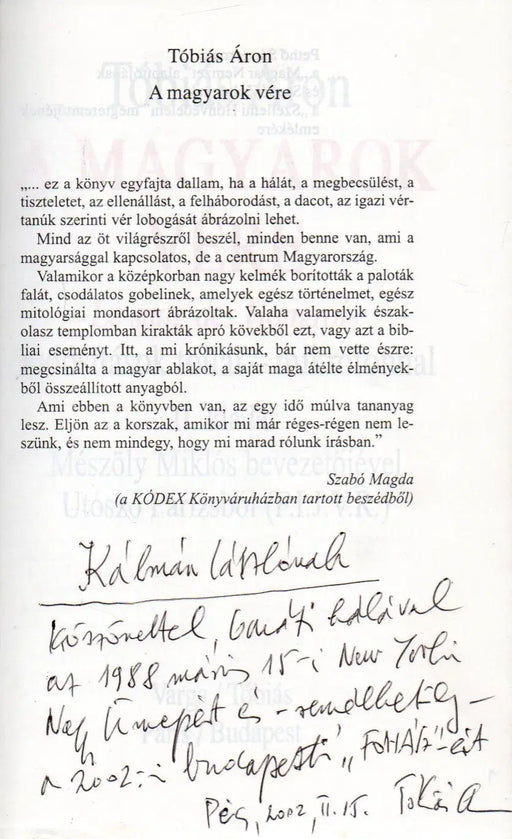 Tóbiás Áron
A magyarok vére
„... ez a könyv egyfajta dallam, ha a hálát, a megbecsülést, a
tiszteletet, az ellenállást, a felháborodást, a dacot, az igazi vér-
tanúk szerinti vér lobogását ábrázolni lehet.
Mind az öt világrészről beszél, minden benne van, ami a
magyarsággal kapcsolatos, de a centrum Magyarország.
Valamikor a középkorban nagy kelmék borították a paloták
falát, csodálatos gobelinek, amelyek egész történelmet, egész
mitológiai mondasort ábrázoltak. Valaha valamelyik észak-
olasz templomban kirakták apró kövekből ezt, vagy azt a bib-
liai eseményt. Itt, a mi krónikásunk, bár nem vette észre:
megcsinálta a magyar ablakot, a saját maga átélte élmények-
ből összeállított anyagból.
Ami ebben a könyvben van, az egy idő múlva tananyag
lesz. Eljön az a korszak, amikor mi már réges-régen nem le-
szünk, és nem mindegy, hogy mi marad rólunk írásban.”
Szabó Magda
(a KÓDEX Könyváruházban tartott beszédből)
Kálmán Lászlónak
Köszönettel, baráti hálával
az 1988 március 15-i New Yorki
Nagy Ünnepért és – remélhetőleg –
a 2002-i budapesti „FOHÁSZ”-ért
2002, II. 15.
Mészöly Miklós bevezetőjével